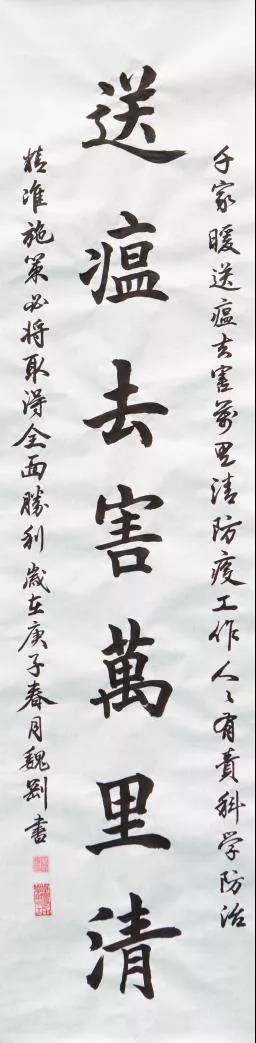 千家暖送瘟去害萬里清防疫工作人〻有責科学防治
送瘟去害萬里清
精准施策必将取得全面勝利歲在庚子春月魏剑書